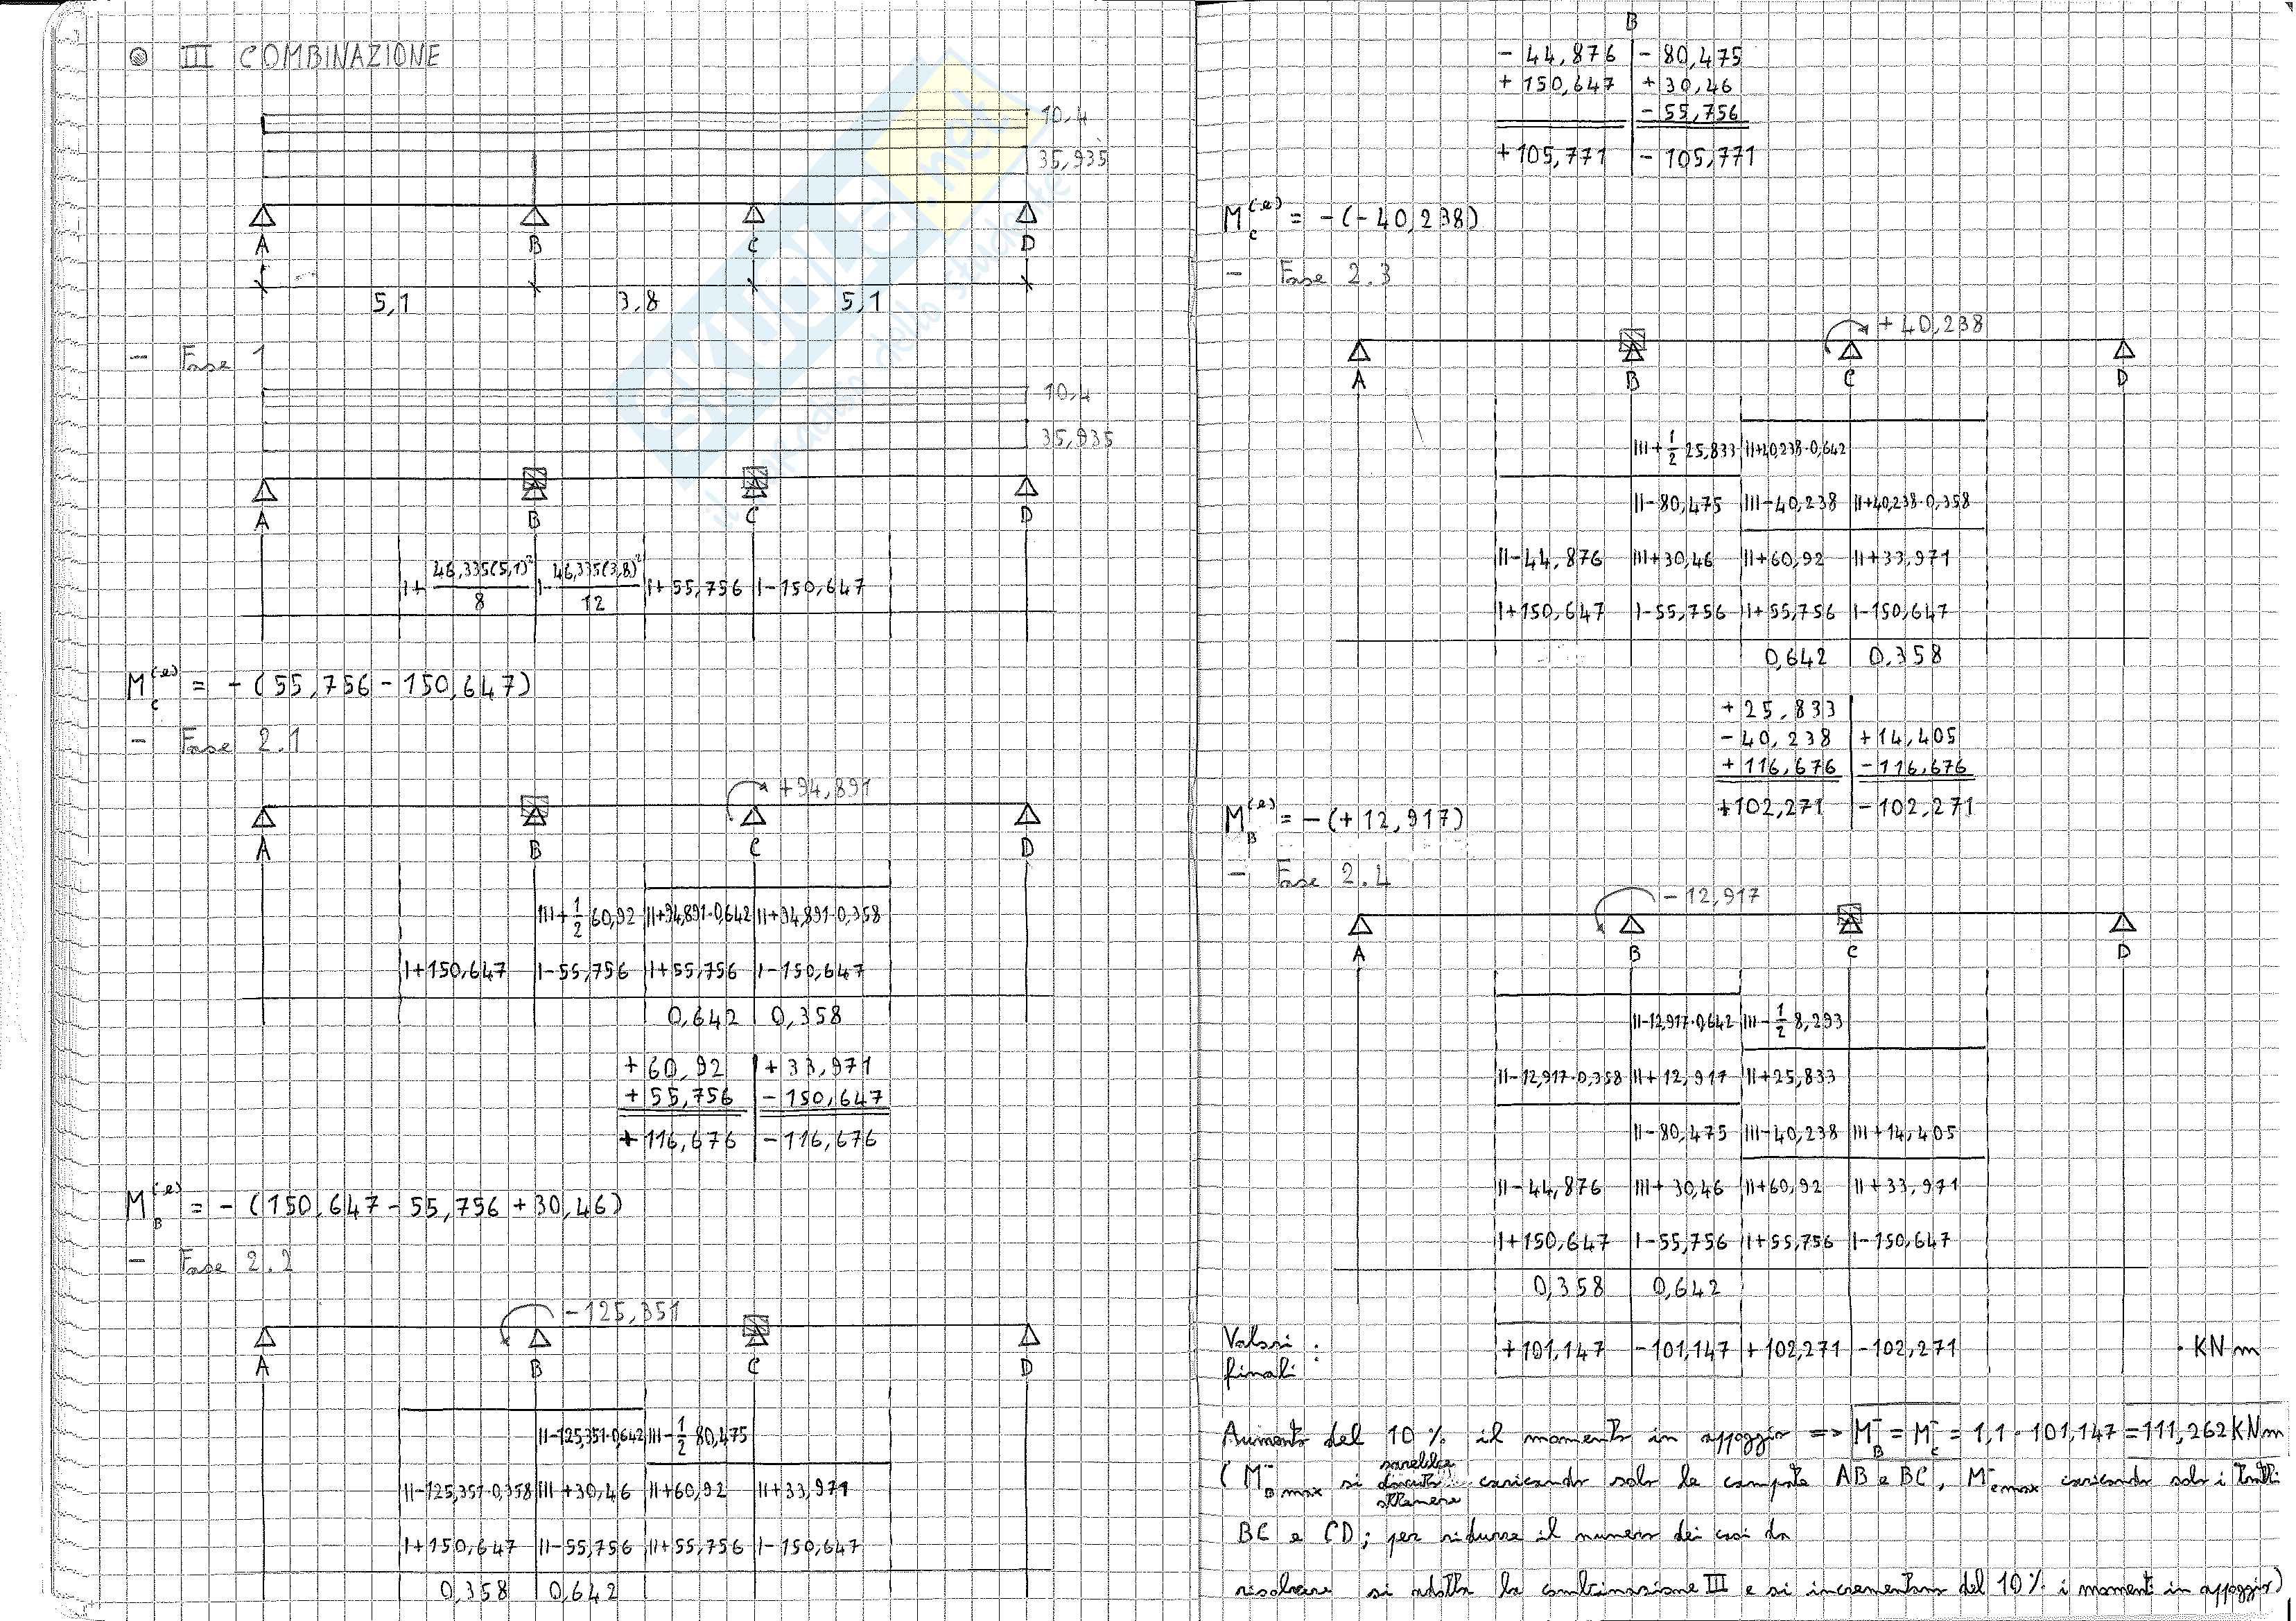 III COMBINAZIONE
10,4
35,935
A B C D
5,1 3,8 5,1
- Fase 1
10,4
35,935
A B C D
I+ 46,335(5,1)²/8 | I- 46,335(3,8)²/12 | I+55,756 | I-150,647
M_C^(e) = -(55,756-150,647)
- Fase 2.1
+94,891
A B C D
III+ 1/2 60,92 | II+94,891·0,642 | II+94,891·0,358
I+150,647 | I-55,756 | I+55,756 | I-150,647
0,642 | 0,358
+60,92 | +33,971
+55,756 | -150,647
+116,676 | -116,676
M_B^(e) = -(150,647-55,756+30,46)
- Fase 2.2
-125,351
A B C D
II-125,351·0,642 | III- 1/2 80,475
II-125,351·0,358 | III+30,46 | II+60,92 | II+33,971
I+150,647 | II-55,756 | II+55,756 | I-150,647
0,358 | 0,642
B
-44,876 | -80,475
+150,647 | +30,46
-55,756
+105,771 | -105,771
M_C^(e) = -(-40,238)
- Fase 2.3
+40,238
A B C D
III+ 1/2 25,833 | II+40,238·0,642
II-80,475 | III-40,238 | II+40,238·0,358
II-44,876 | III+30,46 | II+60,92 | II+33,971
I+150,647 | I-55,756 | II+55,756 | I-150,647
0,642 | 0,358
+25,833
-40,238 | +14,405
+116,676 | -116,676
+102,271 | -102,271
M_B^(e) = -(+12,917)
- Fase 2.4
-12,917
A B C D
II-12,917·0,642 | III- 1/2 8,293
II-12,917·0,358 | II+12,917 | II+25,833
II-80,475 | III-40,238 | III+14,405
II-44,876 | III+30,46 | II+60,92 | II+33,971
I+150,647 | I-55,756 | I+55,756 | I-150,647
0,358 | 0,642
Valori finali: +101,147 | -101,147 | +102,271 | -102,271 · KNm
Aumento del 10% il momento in appoggio => M_B^- = M_C^- = 1,1·101,147 = 111,262 KNm
(M_B max^- si sarebbe ottenere caricando solo le campate AB e BC, M_C max caricando solo i tratti
BC e CD; per ridurre il numero dei casi da
risolvere si adotta la combinazione III e si incrementano del 10% i momenti in appoggio)
SKUOLA.net